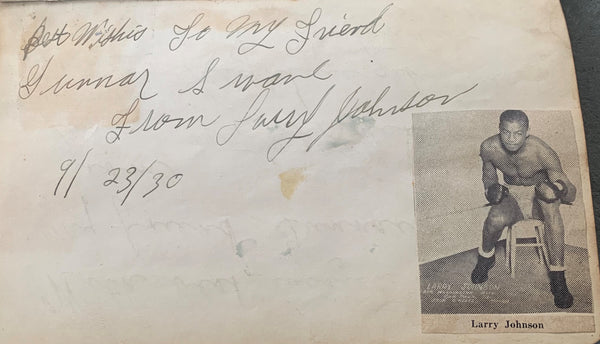 Best Wishis To My Friend
Gunnar Swanl
From Larry Johnson
9/23/30
LARRY JOHNSON
Larry Johnson